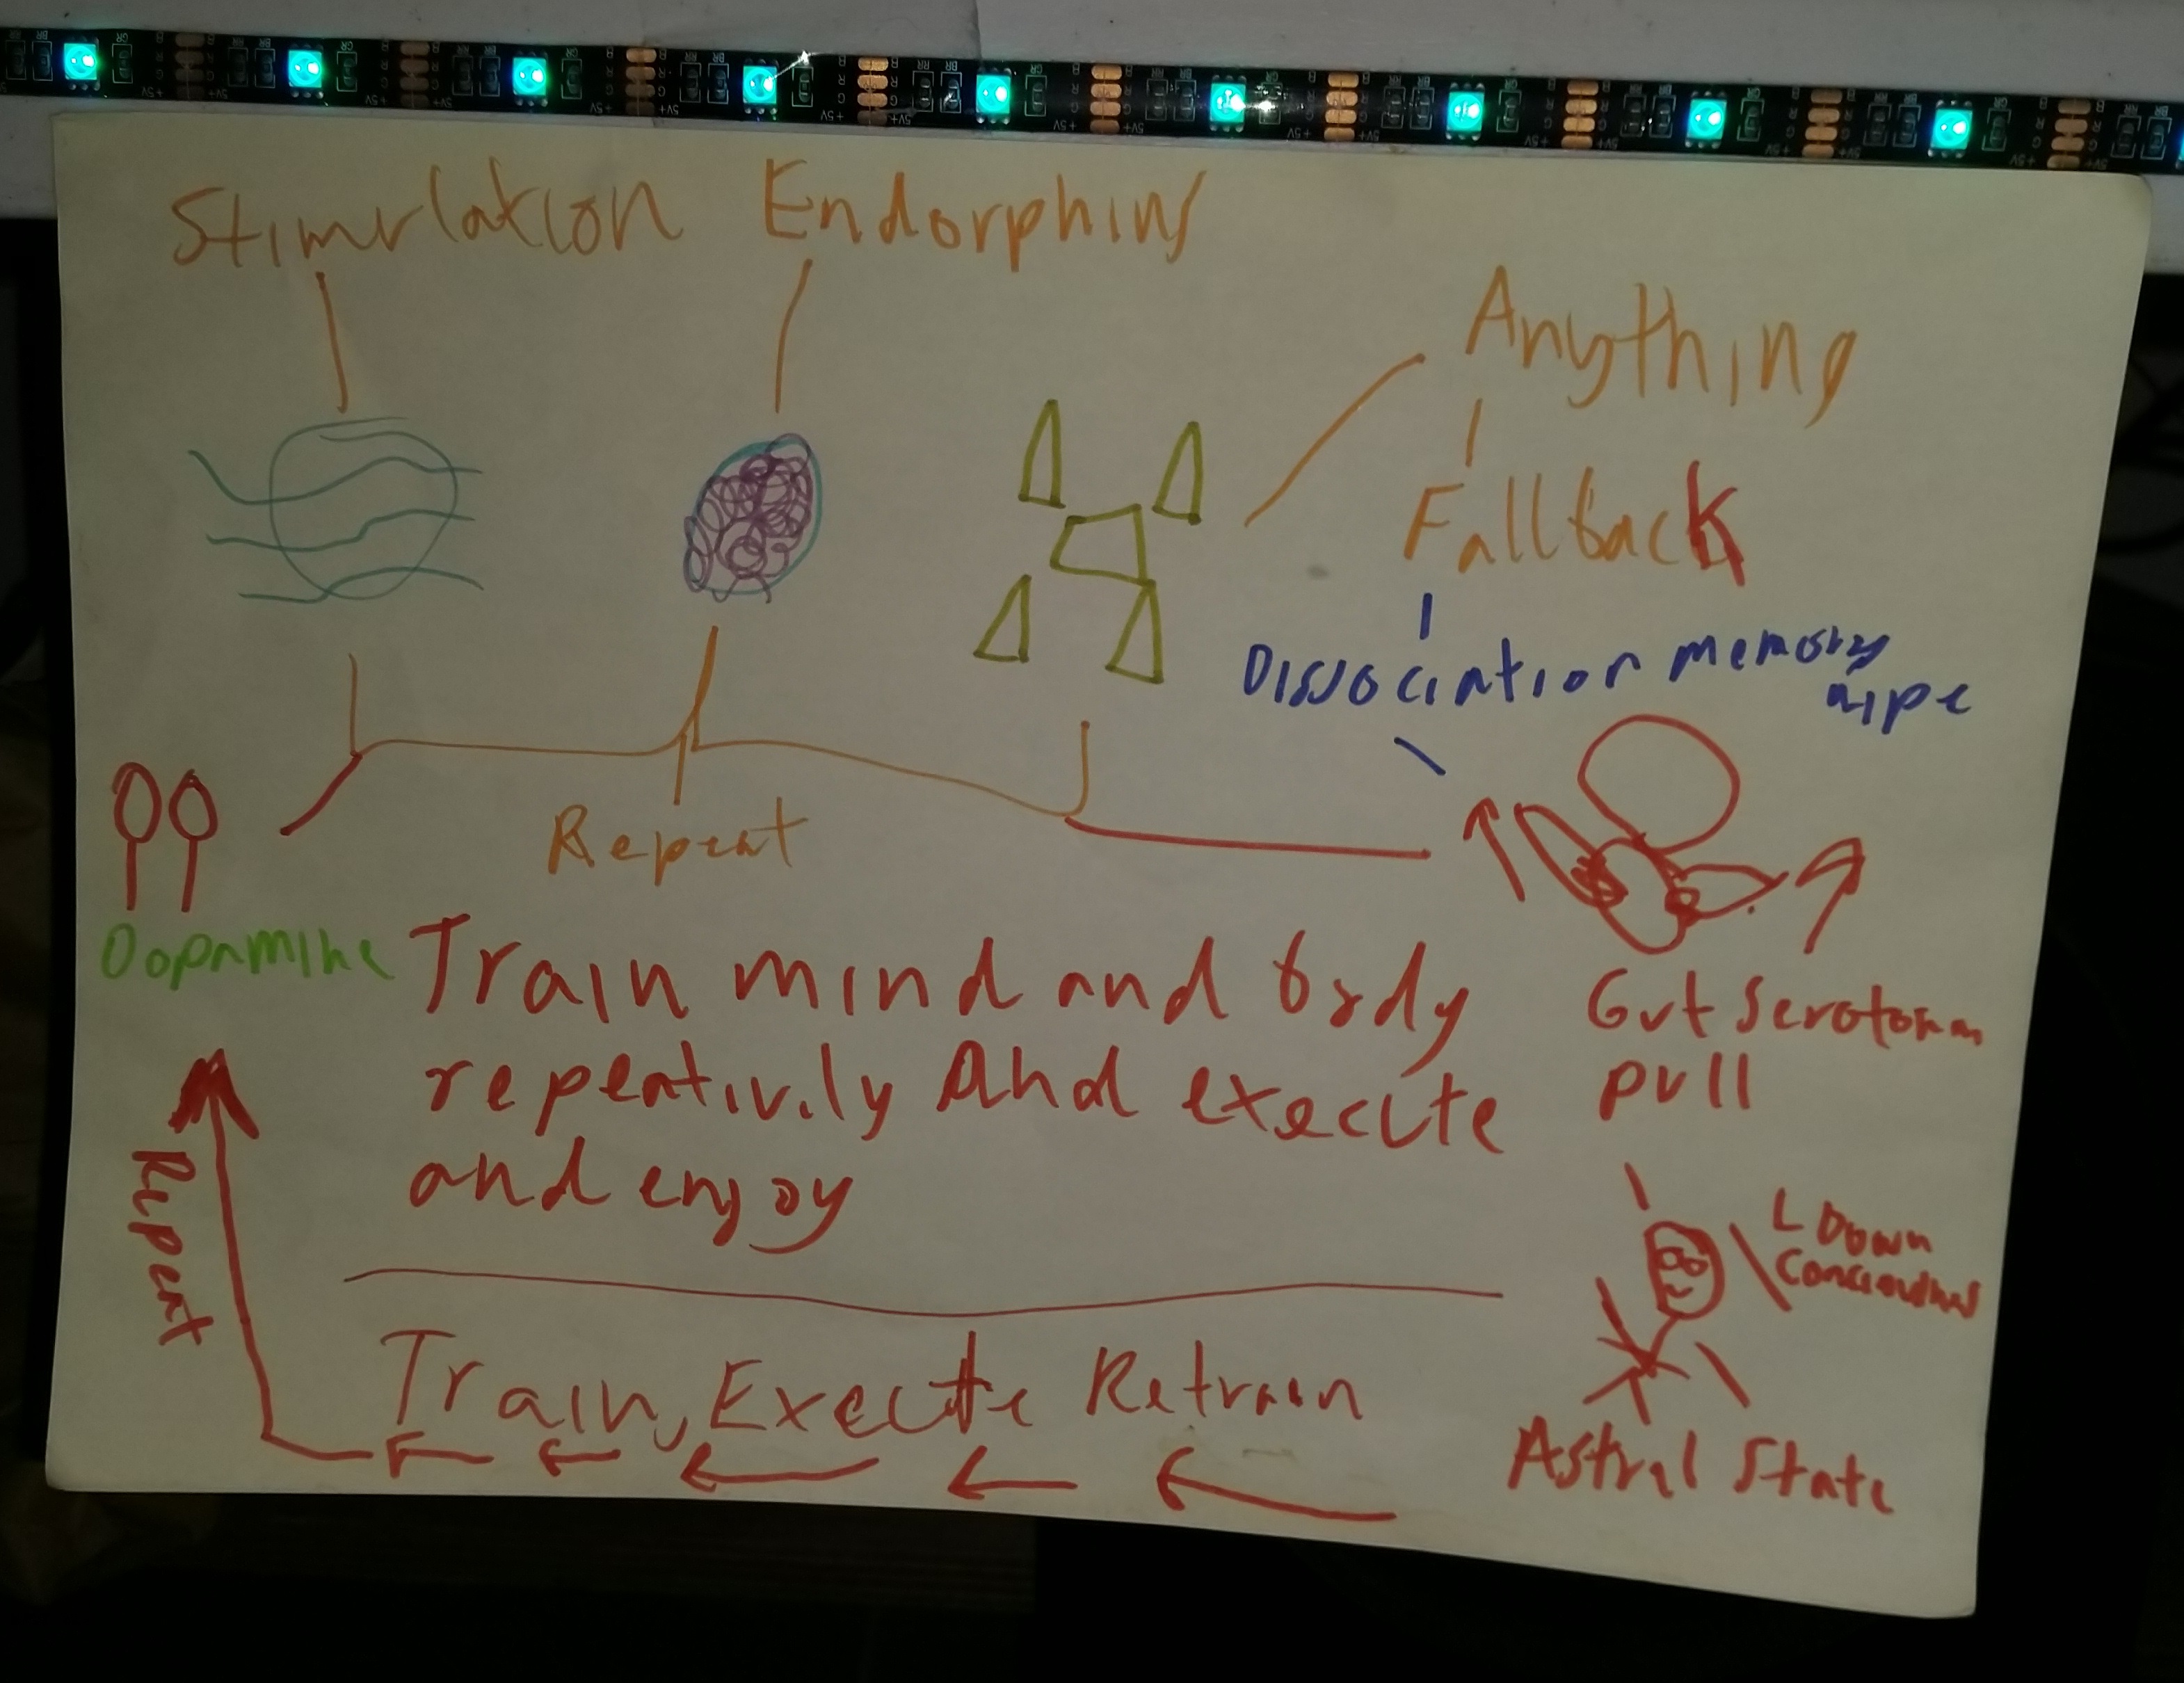 Stimulation Endorphins
Anything
Fallback
Dissociation memory
wipe
Repeat
Dopamine
Train mind and body
repeativily And execute
and enjoy
Gut Serotonin
pull
Repeat
L Down
Train, Execute Retrain
Astral State